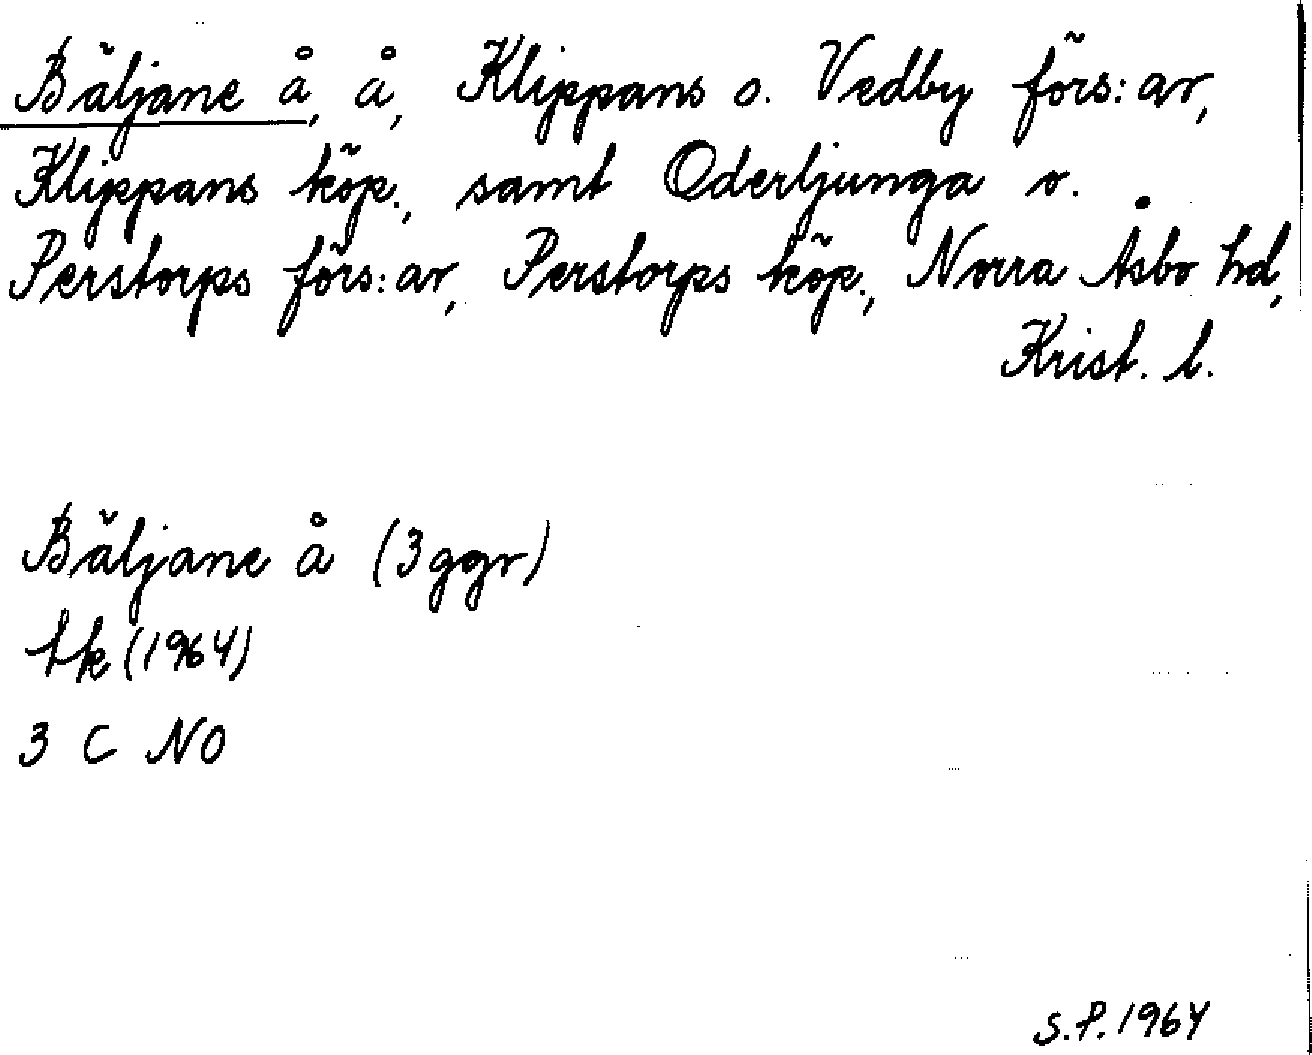 Bäljane å, å, Klippans o. Vedby förs:ar,
Klippans köp., samt Oderljunga o.
Perstorps förs:ar, Perstorps köp., Norra Åsbo hd,
Krist. l.
Bäljane å (3 ggr)
tk (1964)
3 C NO
S.P. 1964